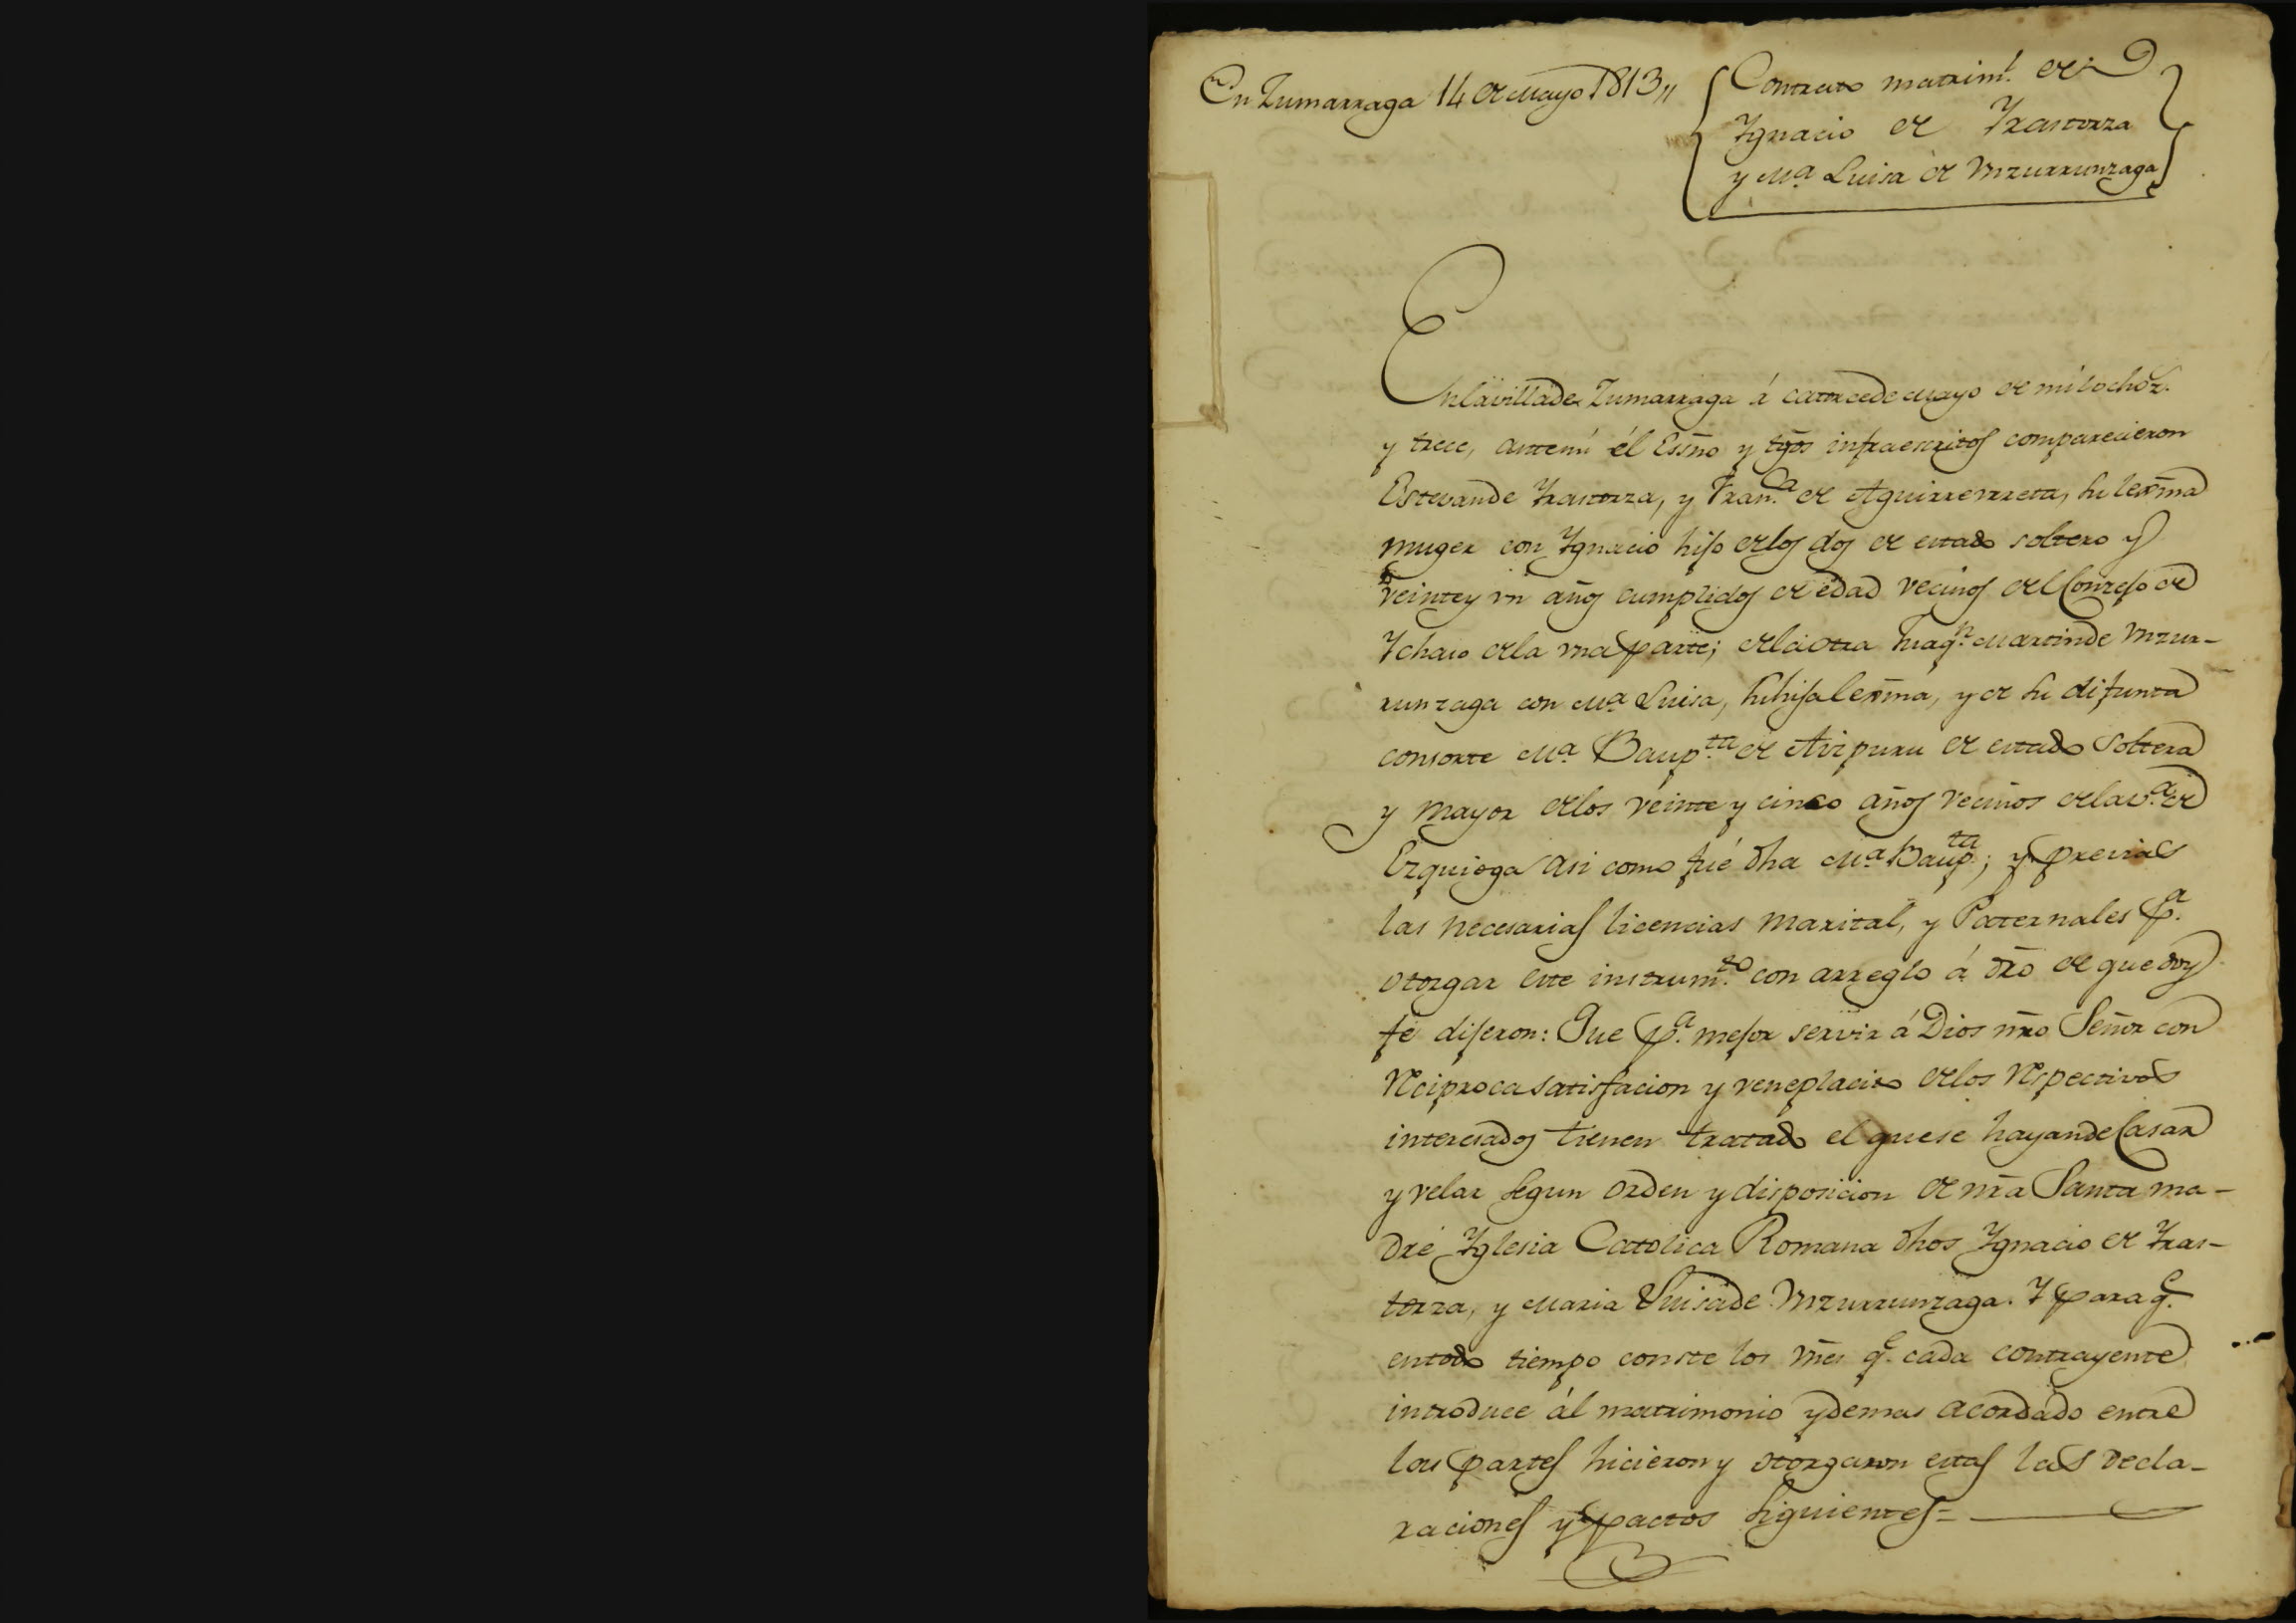 En Zumarraga 14 de Mayo 1813,,
Contrato matrim.l de
Ygnacio de Yrastorza
y M.a Luisa de Vnzurrunzaga
En la villa de Zumarraga á catorce de Mayo de mil ochoz.
y trece, antemi él Essno y tgos infraescritos comparecieron
Estevan de Yrastorza, y Fran.ca de Aguirrevrreta, su lexma
muger con Ygnacio hijo de los dos de estado soltero y
veinte y vn años cumplidos de edad vecinos del Conzejo de
Ychaso de la vna parte; de la otra Juaq.n Martin de Vnzur-
runzaga con M.a Luisa, su hija lexma, y de su difunta
consorte M.a Baup.ta de Aizpuru de estado soltera
y mayor de los veinte y cinco años vecinos de la v.a de
Ezquioga asi como fué dha M.a Baup.ta; y previas
las necesarias licencias marital, y Paternales p.a
otorgar este instrum.to con arreglo á dro de que doy
fé dijeron: Que p.a mejor servir á Dios nro Señor con
reciproca satisfacion y veneplacito de los respectivos
interesados tienen tratado el que se hayan de Casar
y velar segun orden y disposicion de nra Santa ma-
dre Yglesia Catolica Romana dhos Ygnacio de Yras-
torza, y Maria Luisa de Vnzurrunzaga. Y para q.e
en todo tiempo conste los vnes q.e cada contrayente
introduce ál matrimonio y demas acordado entre
las partes hicieron y otorgaron estas las decla-
raciones y pactos siguientes=